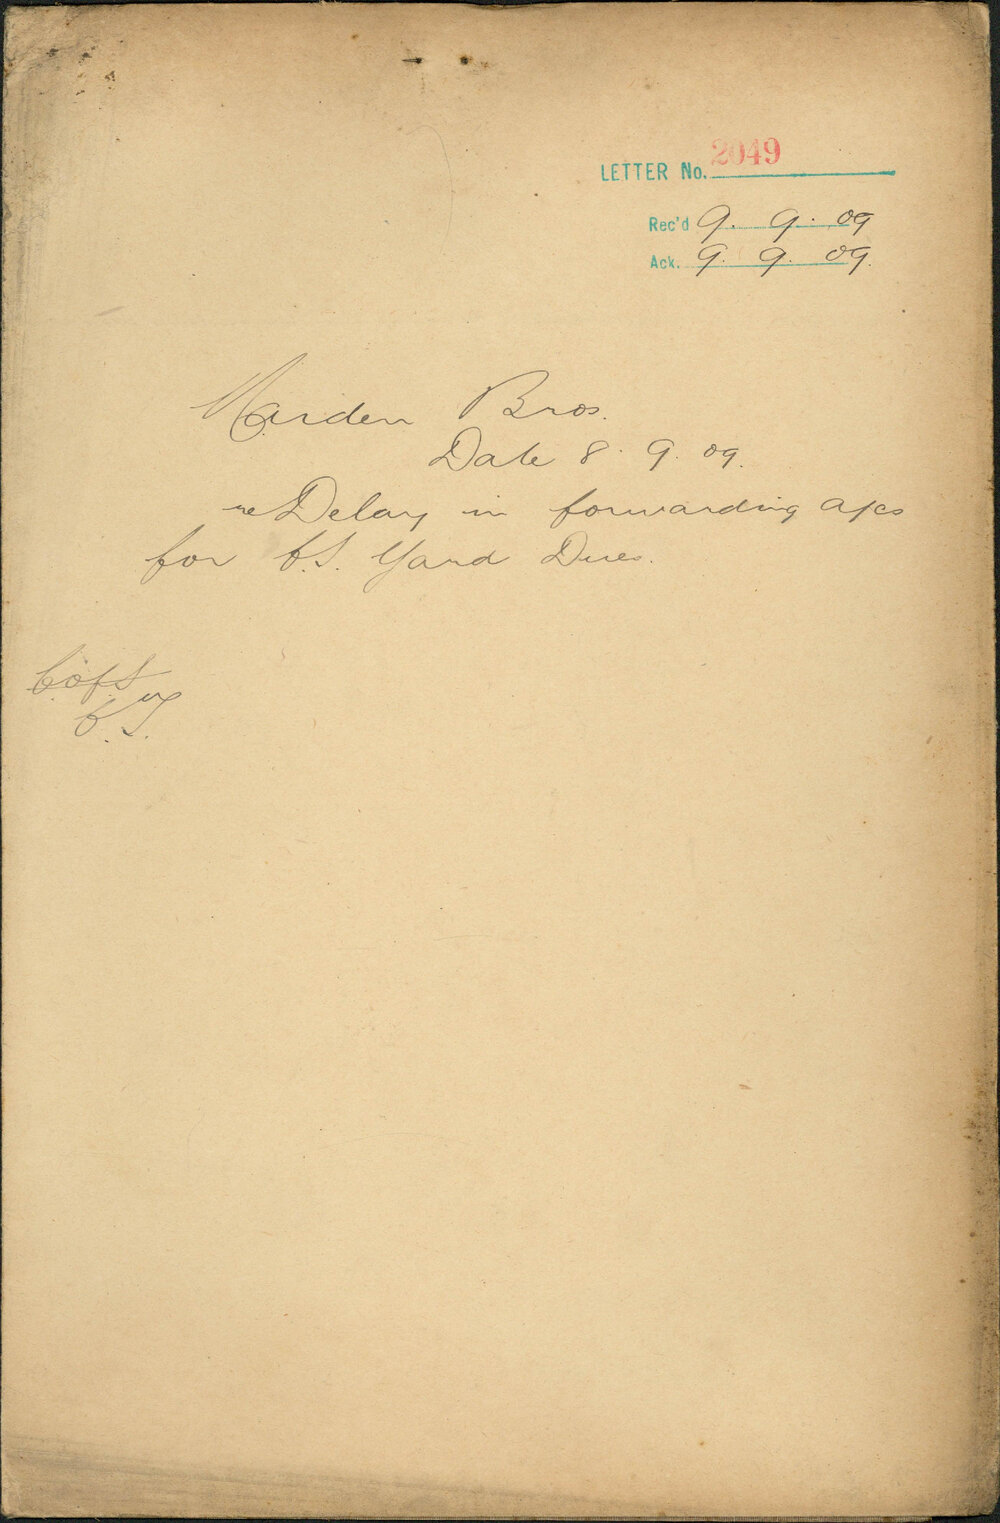 LETTER No. 2049
Rec'd 9. 9. 09
Ack. 9. 9. 09.
Bros.
Date 8. 9. 09.
re Delay in forwarding a/cs
for C.S. Yard Dues.
C. of S
C.S.